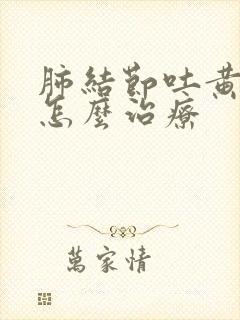 肺結節吐黃
怎麼治療
萬家情